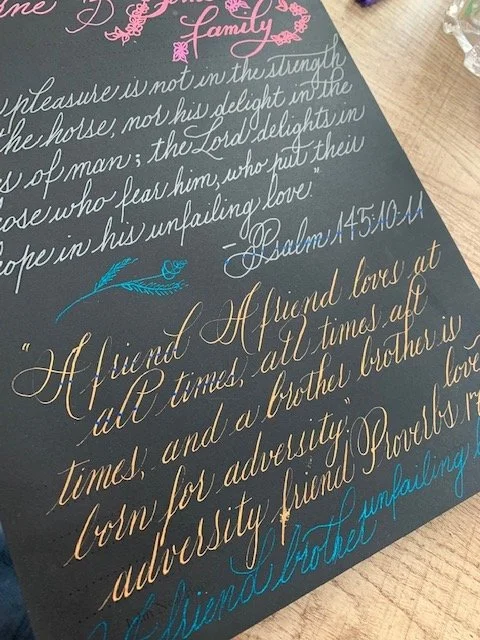 family
pleasure is not in the strength
the horse, nor his delight in the
of man; the Lord delights in
those who fear him, who put their
hope in his unfailing love."
- Psalm 145:10-11
"A friend A friend loves at
all times, all times all
times, and a brother brother is
born for adversity." love
adversity friend Proverbs 17
friend brother unfailing